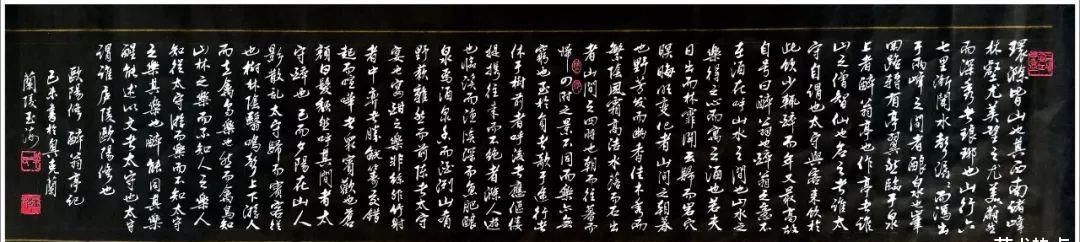 環滁皆山也其西南諸峰
林壑尤美望之尤美蔚然
而深秀者琅琊也山行六
七里漸聞水聲潺潺而瀉出
于兩峰之間者釀泉也峰
回路轉有亭翼然臨于泉
上者醉翁亭也作亭者誰
山之僧智仙也名之者誰
守自謂也太守與客飲於
此飲少輒醉而年又最高故
自號曰醉翁也醉翁之意不
在酒在乎山水之間也山水之
樂得之心而寓之酒也若夫
日出而林霏開雲歸而岩穴
暝晦明變化者山間之朝暮
也野芳發而幽香佳木秀而
繁陰風霜高潔水落石出
者山間之四時也朝而往暮而
歸四時之景不同而樂亦無
窮也至於負者歌于途行者
休于樹前者呼後者應傴僂
提攜往來而不絕者滁人遊
也臨溪而漁溪深而魚肥釀
泉為酒泉香而酒洌山肴
野蔌雜然而前陳者太守
宴也宴酣之樂非絲非竹射
者中弈者勝觥籌交錯
起坐而喧嘩者眾賓歡也蒼
顏白髮頹然乎其間者太
守醉也已而夕陽在山人
影散亂太守歸而賓客從
也樹林陰翳鳴聲上下遊人
而去禽鳥樂也然而禽鳥知
山林之樂而不知人之樂人
知從太守遊而樂而不知太守
之樂其樂也醉能同其樂
醒能述以文者太守也太守
謂誰廬陵歐陽修也
歐陽修 醉翁亭記
書於奧克蘭
蘭陵玉